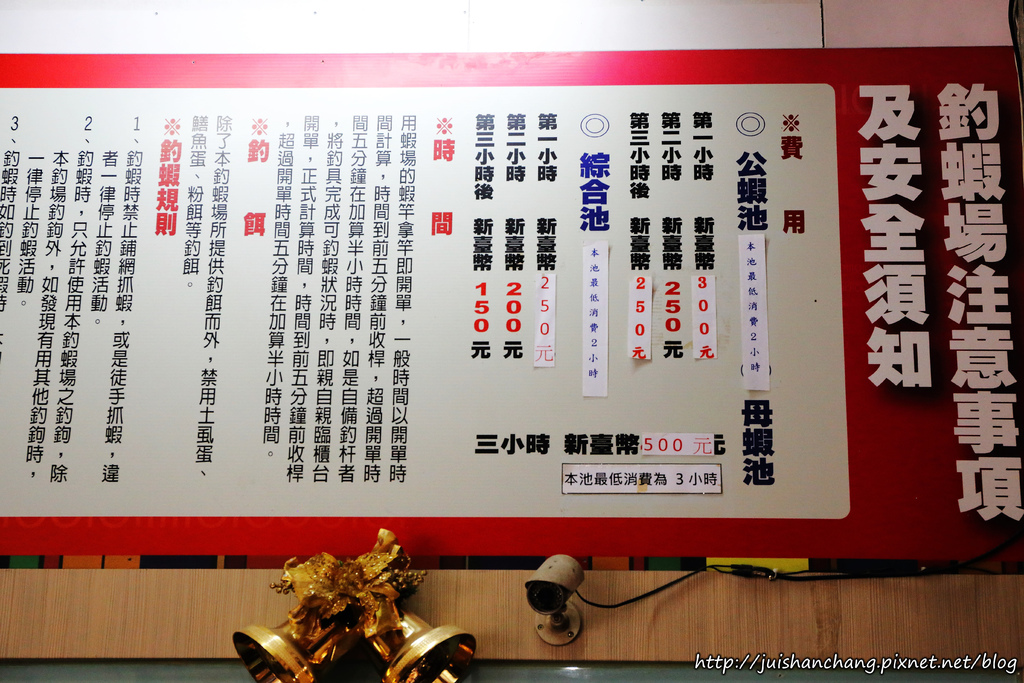 釣蝦場注意事項
及安全須知
※費用
◎公蝦池
本池最低消費2小時
第一小時 新臺幣300元
第二小時 新臺幣250元
第三小時後 新臺幣250元
◎綜合池
本池最低消費2小時
第一小時 新臺幣250元
第二小時 新臺幣200元
第三小時後 新臺幣150元
母蝦池
三小時 新臺幣500元
本池最低消費為 3小時
※時間
用蝦場的蝦竿拿竿即開單，一般時間以開單時
間計算，時間到前五分鐘前收桿，超過開單時
間五分鐘在加算半小時時間，如是自備釣杆者
，將釣具完成可釣蝦狀況時，即親自親臨櫃台
開單，正式計算時間，時間到前五分鐘前收桿
，超過開單時間五分鐘在加算半小時時間。
※釣餌
除了本釣蝦場所提供釣餌而外，禁用土虱蛋、
鱔魚蛋、粉餌等釣餌。
※釣蝦規則
1、釣蝦時禁止鋪網抓蝦，或是徒手抓蝦，違
者一律停止釣蝦活動。
2、釣蝦時，只允許使用本釣蝦場之釣鉤，除
本釣場釣鉤外，如發現有用其他釣鉤時，
一律停止釣蝦活動。
3、釣蝦時如釣到死蝦時
http://juishanchang.pixnet.net/blog